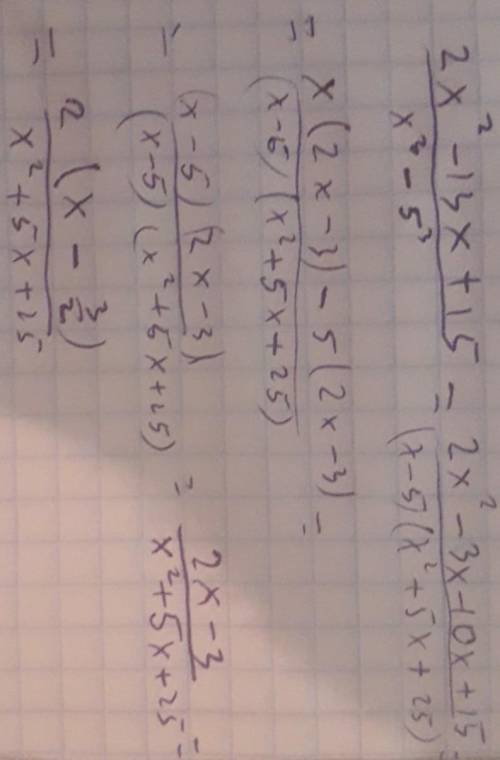 (2x² - 13x + 15)/(x³ - 5³) = (2x² - 3x - 10x + 15)/((x-5)(x² + 5x + 25)) =
= (x(2x - 3) - 5(2x - 3))/((x-5)(x² + 5x + 25)) =
= ((x - 5)(2x - 3))/((x-5)(x² + 5x + 25)) = (2x - 3)/(x² + 5x + 25) =
= (2(x - 3/2))/(x² + 5x + 25)